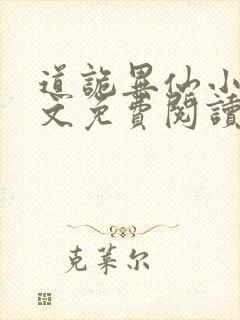 道詭異仙小
文免費閱讀
克萊尔